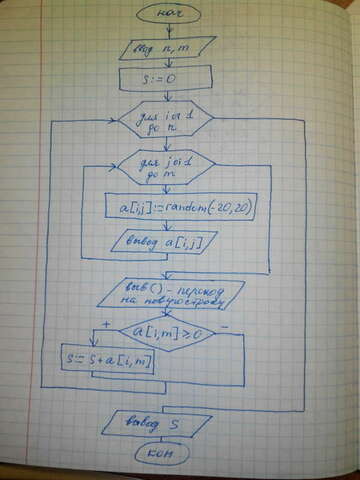 нач
ввод n, m
S:=0
для i от 1
до n
для j от 1
до m
a[i,j]:=random(-20,20)
вывод a[i,j]
выв() - переход
на новую строку
a[i,m]≥0
+
-
S:= S+a[i,m]
вывод S
кон